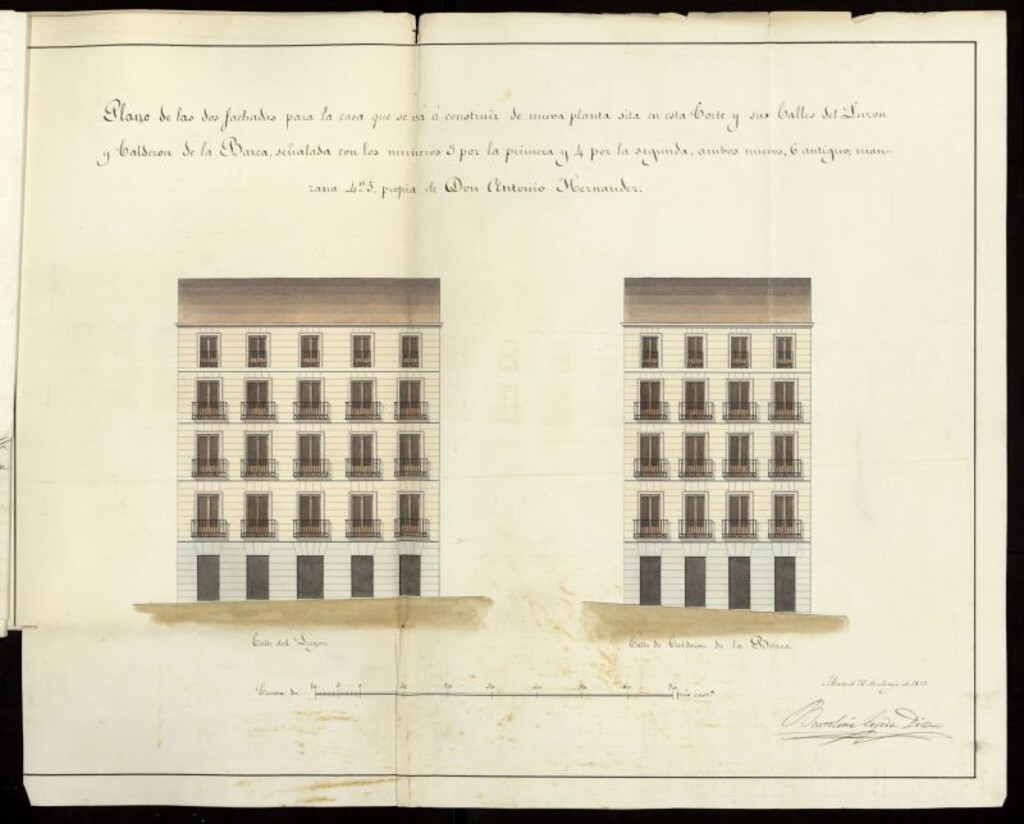 Plano de las dos fachadas para la casa que se vá á construir de nueva planta sita en esta Corte y sus Calles del Luzon
y Calderon de la Barca, señalada con los numeros 3 por la primera y 4 por la segunda, ambos nuevos, 6 antiguo, man-
zana 425, propia de Don Antonio Hernandez.
Calle del Luzon
Calle de Calderon de la Barca
Escala de 10 5 10 20 30 40 50 60 70 pies cast.s
Madrid de de
Bartolomé Tejeda Diez